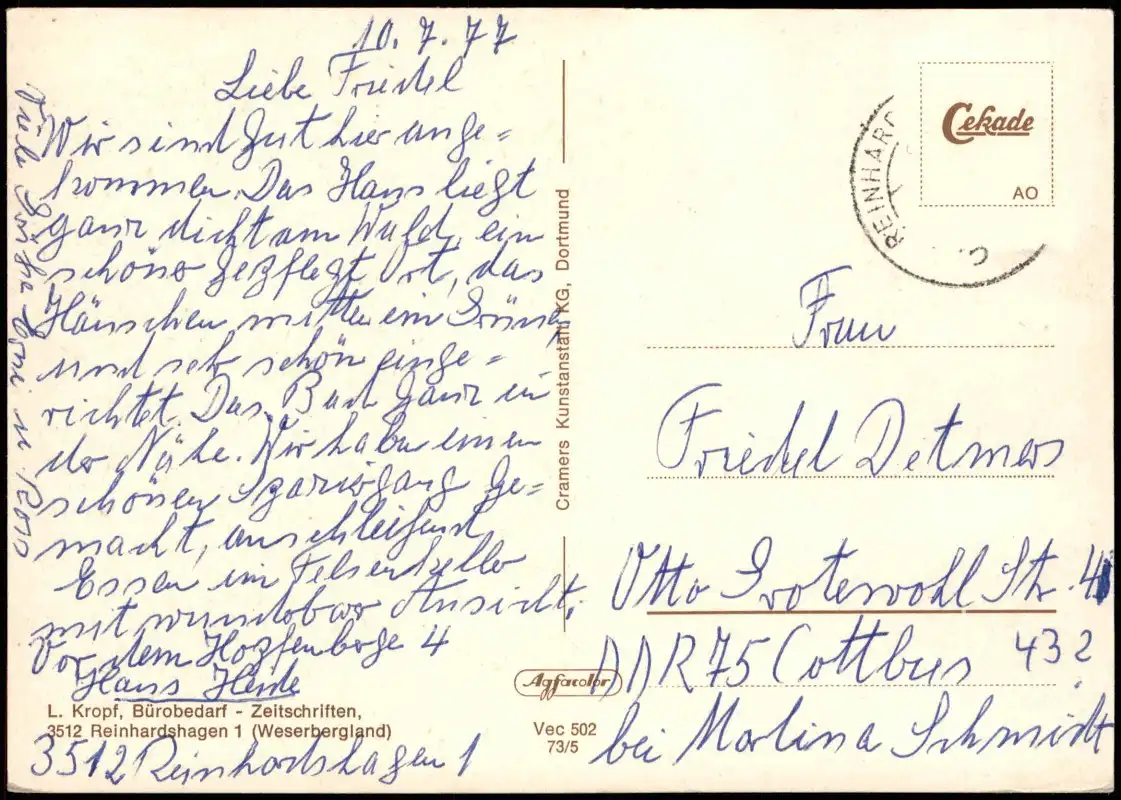 10. 7. 77
Liebe Friedel
Wir sind gut hier ange=
kommen. Das Haus liegt
ganz dicht am Wald, ein
schöner gepflegt Ort, das
Häuschen mitten im Grünen
und sehr schön einge=
richtet. Das Bad ganz in
der Nähe. Wir haben einen
schönen Spaziergang ge=
macht, anschleißend
Essen im Felsenkeller
mit wunderbarer Aussicht.
Vor dem Hopfenberge 4
Haus Heide
3512 Reinhardshagen 1
Viele Grüße
L. Kropf, Bürobedarf - Zeitschriften,
3512 Reinhardshagen 1 (Weserbergland)
Cramers Kunstanstalt KG, Dortmund
Agfacolor
Vec 502
73/5
Cekade
AO
REINHARD
Frau
Friedel Detmers
Otto Grotewohl Str. 4
DDR 75 Cottbus
432?
bei Marlina Schmidt